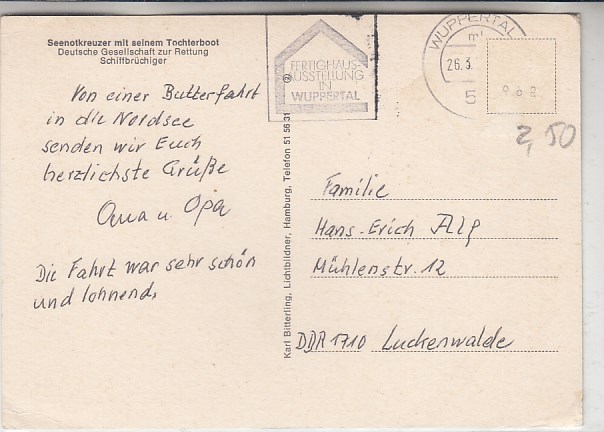 Seenotkreuzer mit seinem Tochterboot
Deutsche Gesellschaft zur Rettung
Schiffbrüchiger
Von einer Butterfahrt
in die Nordsee
senden wir Euch
herzlichste Grüße
Oma u. Opa
Die Fahrt war sehr schön
und lohnend.
Karl Bitterling, Lichtbildner, Hamburg, Telefon 51 56 31
FERTIGHAUS-
AUSSTELLUNG
IN
WUPPERTAL
WUPPERTAL
26.3.
5
2,50
Familie
Hans-Erich Alf
Mühlenstr. 12
DDR 1710 Luckenwalde